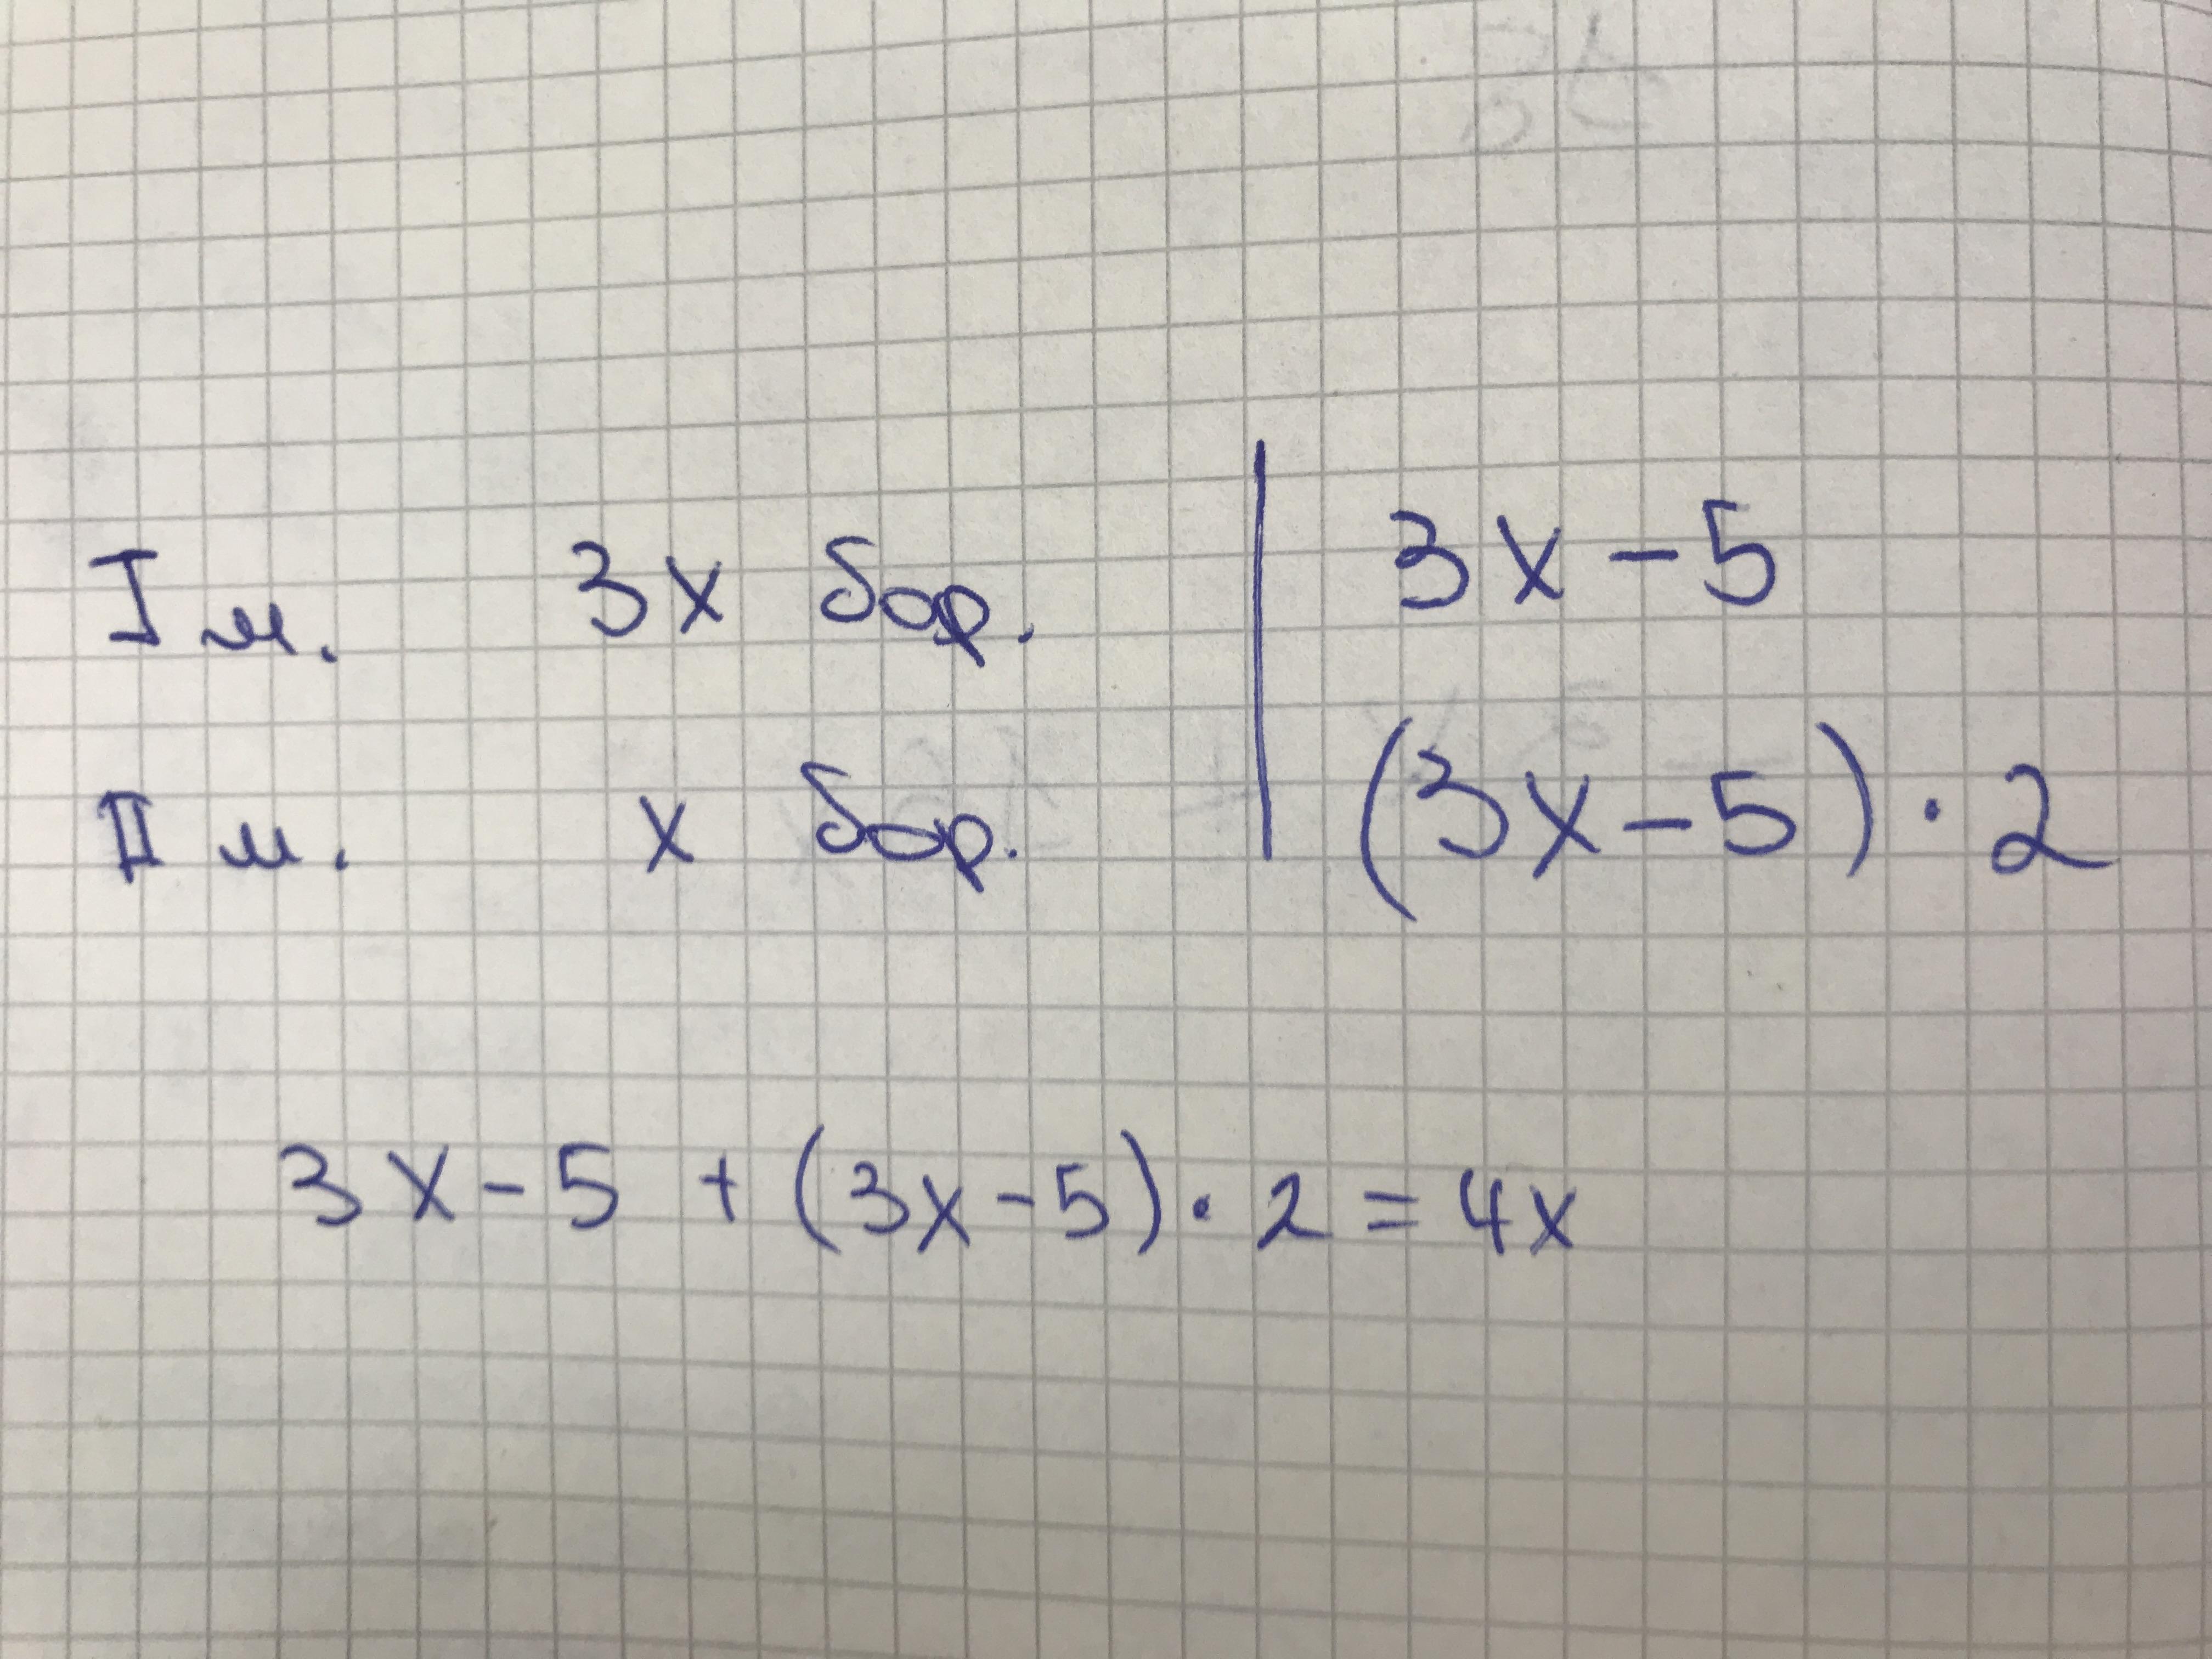 I м. 3x бор. | 3x - 5
II м. x бор. | (3x - 5) · 2
3x - 5 + (3x - 5) · 2 = 4x